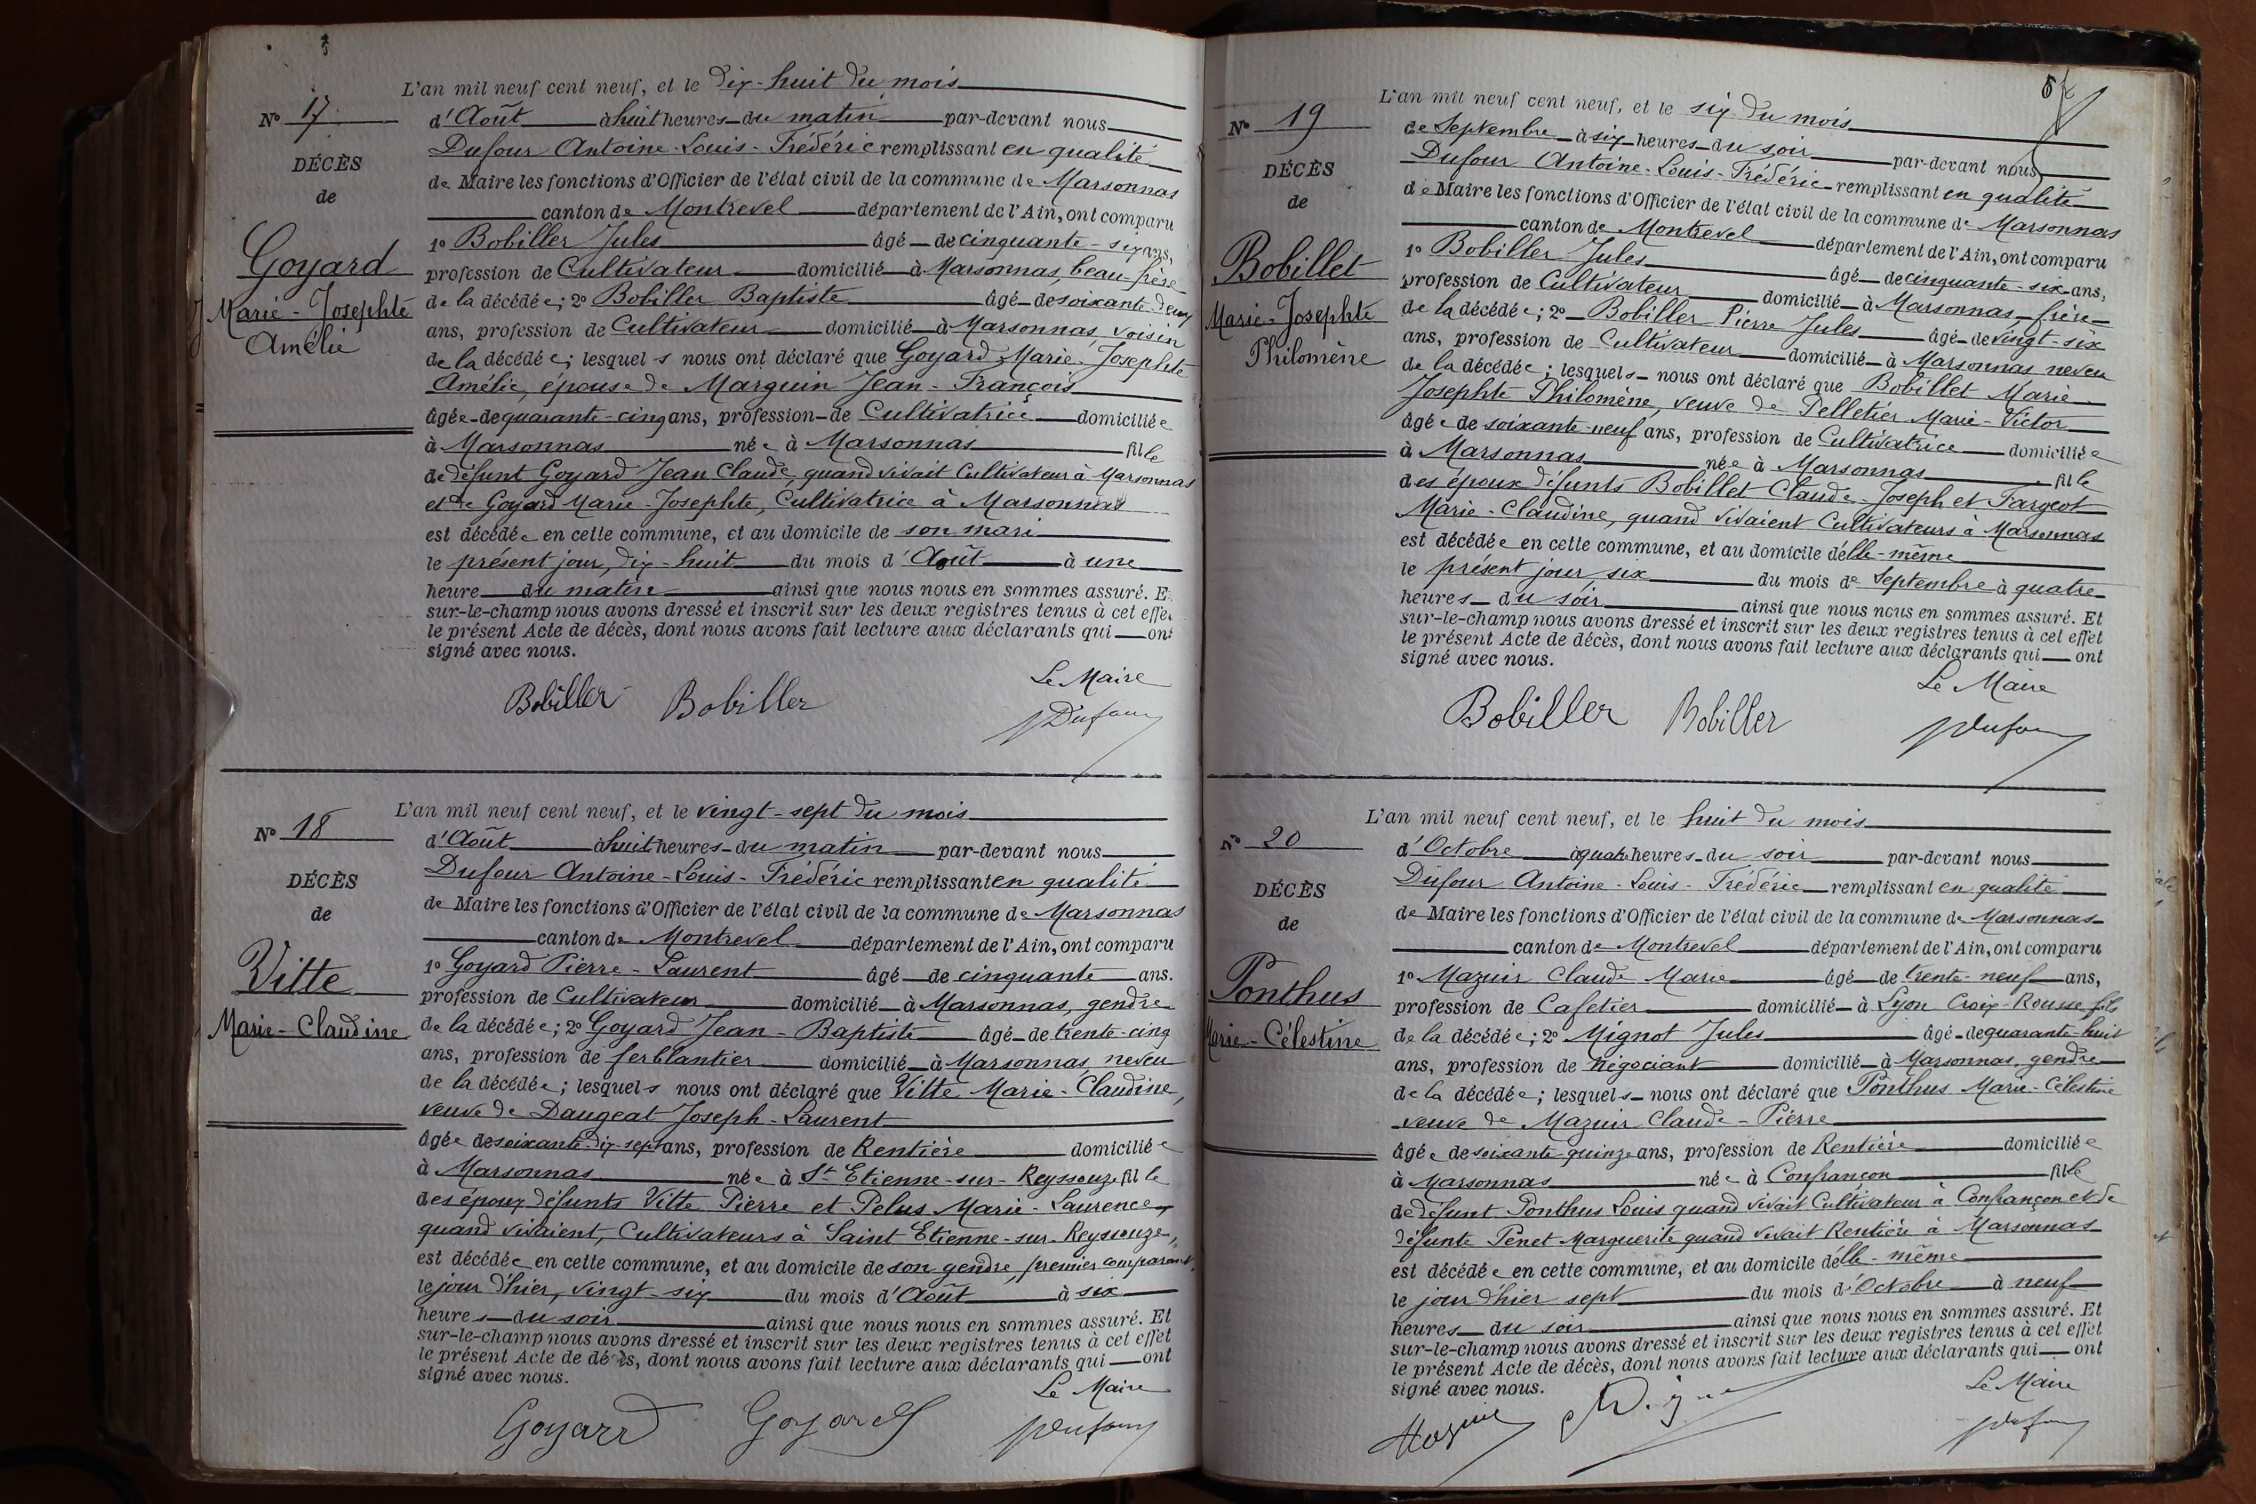 L'an mil neuf cent neuf, et le dix-huit du mois
N° 17
d'Août à huit heures du matin par-devant nous
Dufour Antoine-Louis-Frédéric remplissant en qualité
DÉCÈS
de Maire les fonctions d'Officier de l'état civil de la commune de Marsonnas
de
canton de Montrevel département de l'Ain, ont comparu
1° Bobiller Jules âgé de cinquante-six ans,
Goyard
profession de Cultivateur domicilié à Marsonnas, beau-frère
Marie-Josephte
de la décédée; 2° Bobiller Baptiste âgé de soixante-deux
Amélie
ans, profession de Cultivateur domicilié à Marsonnas, voisin
de la décédée; lesquels nous ont déclaré que Goyard Marie-Josephte
Amélie, épouse de Marguin Jean-François
âgée de quarante-cinq ans, profession de Cultivatrice domiciliée
à Marsonnas née à Marsonnas fille
de défunt Goyard Jean Claude, quand vivait Cultivateur à Marsonnas
et de Goyard Marie-Josephte, Cultivatrice à Marsonnas
est décédée en cette commune, et au domicile de son mari
le présent jour, dix-huit du mois d'Août à une
heure du matin ainsi que nous nous en sommes assuré. E
sur-le-champ nous avons dressé et inscrit sur les deux registres tenus à cet effe
le présent Acte de décès, dont nous avons fait lecture aux déclarants qui ont
signé avec nous.
Le Maire
Bobiller Bobiller Dufour
L'an mil neuf cent neuf, et le vingt-sept du mois
N° 18
d'Août à huit heures du matin par-devant nous
Dufour Antoine-Louis-Frédéric remplissant en qualité
DÉCÈS
de Maire les fonctions d'Officier de l'état civil de la commune de Marsonnas
de
canton de Montrevel département de l'Ain, ont comparu
1° Goyard Pierre-Laurent âgé de cinquante ans.
Vitte
profession de Cultivateur domicilié à Marsonnas, gendre
Marie-Claudine
de la décédée; 2° Goyard Jean-Baptiste âgé de trente-cinq
ans, profession de ferblantier domicilié à Marsonnas, neveu
de la décédée; lesquels nous ont déclaré que Vitte Marie-Claudine,
veuve de Daugeat Joseph-Laurent
âgée de soixante-dix-sept ans, profession de Rentière domiciliée
à Marsonnas née à St Etienne-sur-Reyssouze fille
des époux défunts Vitte Pierre et Pelus Marie-Laurence,
quand vivaient, Cultivateurs à Saint Etienne-sur-Reyssouze,
est décédée en cette commune, et au domicile de son gendre, premier comparant,
le jour d'hier, vingt-six du mois d'Août à six
heures du soir ainsi que nous nous en sommes assuré. Et
sur-le-champ nous avons dressé et inscrit sur les deux registres tenus à cet effet
le présent Acte de décès, dont nous avons fait lecture aux déclarants qui ont
signé avec nous.
Le Maire
Goyard Goyard Dufour
L'an mil neuf cent neuf, et le six du mois
N° 19
de Septembre à six heures du soir par-devant nous
Dufour Antoine-Louis-Frédéric remplissant en qualité
DÉCÈS
de Maire les fonctions d'Officier de l'état civil de la commune de Marsonnas
de
canton de Montrevel département de l'Ain, ont comparu
1° Bobiller Jules âgé de cinquante-six ans,
Bobillet
profession de Cultivateur domicilié à Marsonnas frère
Marie-Josephte
de la décédée; 2° Bobiller Pierre Jules âgé de vingt-six
Philomène
ans, profession de Cultivateur domicilié à Marsonnas neveu
de la décédée; lesquels nous ont déclaré que Bobillet Marie
Josephte Philomène, veuve de Pelletier Marie-Victor
âgée de soixante-neuf ans, profession de Cultivatrice domiciliée
à Marsonnas née à Marsonnas fille
des époux défunts Bobillet Claude-Joseph et Fargeot
Marie-Claudine, quand vivaient Cultivateurs à Marsonnas
est décédée en cette commune, et au domicile d'elle-même
le présent jour six du mois de Septembre à quatre
heures du soir ainsi que nous nous en sommes assuré. Et
sur-le-champ nous avons dressé et inscrit sur les deux registres tenus à cet effet
le présent Acte de décès, dont nous avons fait lecture aux déclarants qui ont
signé avec nous.
Le Maire
Bobiller Bobiller Dufour
L'an mil neuf cent neuf, et le huit du mois
N° 20
d'Octobre à quatre heures du soir par-devant nous
Dufour Antoine-Louis-Frédéric remplissant en qualité
DÉCÈS
de Maire les fonctions d'Officier de l'état civil de la commune de Marsonnas
de
canton de Montrevel département de l'Ain, ont comparu
1° Mazuir Claude Marie âgé de trente-neuf ans,
Ponthus
profession de Cafetier domicilié à Lyon Croix-Rousse fils
Marie-Célestine
de la décédée; 2° Mignot Jules âgé de quarante-huit
ans, profession de négociant domicilié à Marsonnas, gendre
de la décédée; lesquels nous ont déclaré que Ponthus Marie-Célestine
veuve de Mazuir Claude-Pierre
âgée de soixante quinze ans, profession de Rentière domiciliée
à Marsonnas née à Confrançon fille
de défunt Ponthus Louis quand vivait Cultivateur à Confrançon et de
défunte Penet Marguerite quand vivait Rentière à Marsonnas
est décédée en cette commune, et au domicile d'elle-même
le jour d'hier sept du mois d'Octobre à neuf
heures du soir ainsi que nous nous en sommes assuré. Et
sur-le-champ nous avons dressé et inscrit sur les deux registres tenus à cet effet
le présent Acte de décès, dont nous avons fait lecture aux déclarants qui ont
signé avec nous.
Le Maire
Mazuir Dufour